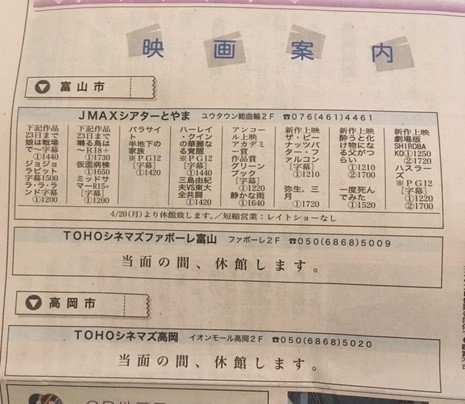 映画案内
富山市
JMAXシアターとやま ユウタウン総曲輪2F ☎076(461)4461
下記作品
23日まで
娘は戦場
で〜字幕
①1440
ジョジョ
ラビット
字幕1500
ラ・ラ・ラ
ンド字幕
①1200
下記作品
23日まで
囀る鳥は
〜R18+
①1730
仮面病棟
①1650
ミッドサ
マーR15+
[字幕]
②2000
パラサイ
ト
半地下の
家族
※PG12
[字幕]
①1420
ハーレイ
・クイン
の華麗な
る覚醒
※PG12
[字幕]
三島由紀
夫VS東大
全共闘
①1420
アンコー
ル上映
アカデミ
ー賞
作品賞
グリーン
ブック
[字幕]
①1220
静かな雨
①1640
新作上映
ザ・ピー
ナッツバ
ター・フ
ァルコン
[字幕]
①1210
弥生、三
月
①1720
新作上映
酔うと化
け物にな
る父がつ
らい
①1210
一度死ん
でみた
①1520
新作上映
劇場版
SHIROBA
KO①1250
ハスラー
ズ
※PG12
[字幕]
②1700
4/20(月)より休館致します。/短縮営業:レイトショーなし
TOHOシネマズファボーレ富山 ファボーレ2F ☎050(6868)5009
当面の間、休館します。
高岡市
TOHOシネマズ高岡 イオンモール高岡2F ☎050(6868)5020
当面の間、休館します。